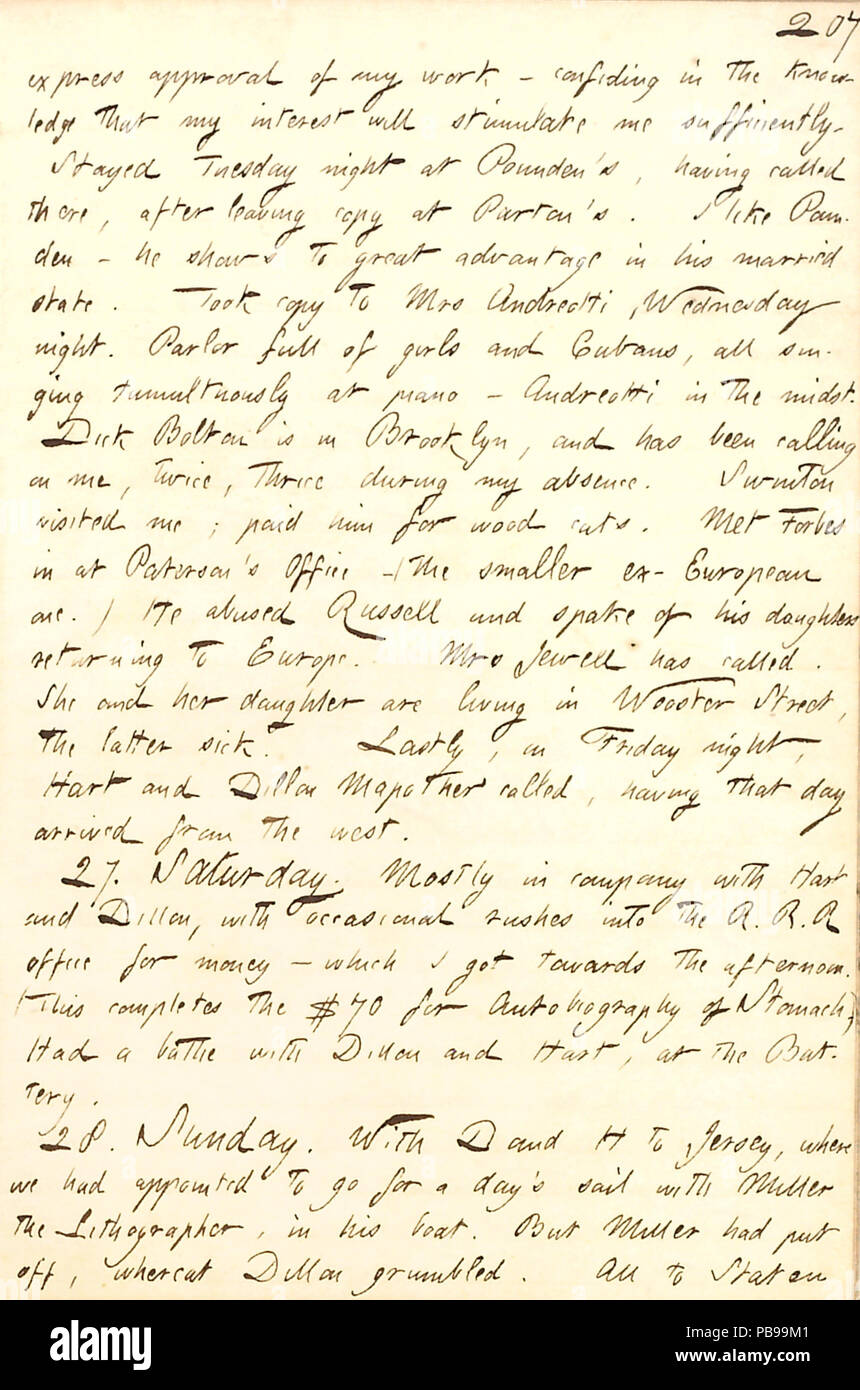 207
express approval of my work - confiding in the know-
ledge that my interest will stimulate me sufficiently.
Stayed Tuesday night at Pounden's, having called
there, after leaving copy at Parton's. I like Poun-
den - he shows to great advantage in his married
state. Took copy to Mrs Andreotti, Wednesday
night. Parlor full of girls and Cubans, all sin-
ging tumultuously at piano - Andreotti in the midst.
Dick Bolton is in Brooklyn, and has been calling
on me, twice, thrice during my absence. Swinton
visited me; paid him for wood cuts. Met Forbes
in at Paterson's Office - (the smaller ex-European
one.) He abused Russell and spake of his daughters
returning to Europe. Mrs Jewell has called.
She and her daughter are living in Wooster Street,
the latter sick. Lastly, on Friday night,
Hart and Dillon Mapother called, having that day
arrived from the west.
27. Saturday. Mostly in company with Hart
and Dillon, with occasional rushes into the R. R. R
office for money - which I got towards the afternoon.
(This completes the $70 for Autobiography of Stomach,)
Had a bathe with Dillon and Hart, at the Bat-
tery.
28. Sunday. With D and H to Jersey, where
we had appointed to go for a day's sail with Miller
the Lithographer, in his boat. But Miller had put
off, whereat Dillon grumbled. All to Staten
alamy
Image ID: PB99M1
www.alamy.com